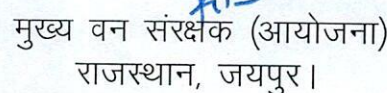 मुख्य वन संरक्षक (आयोजना)
राजस्थान, जयपुर।